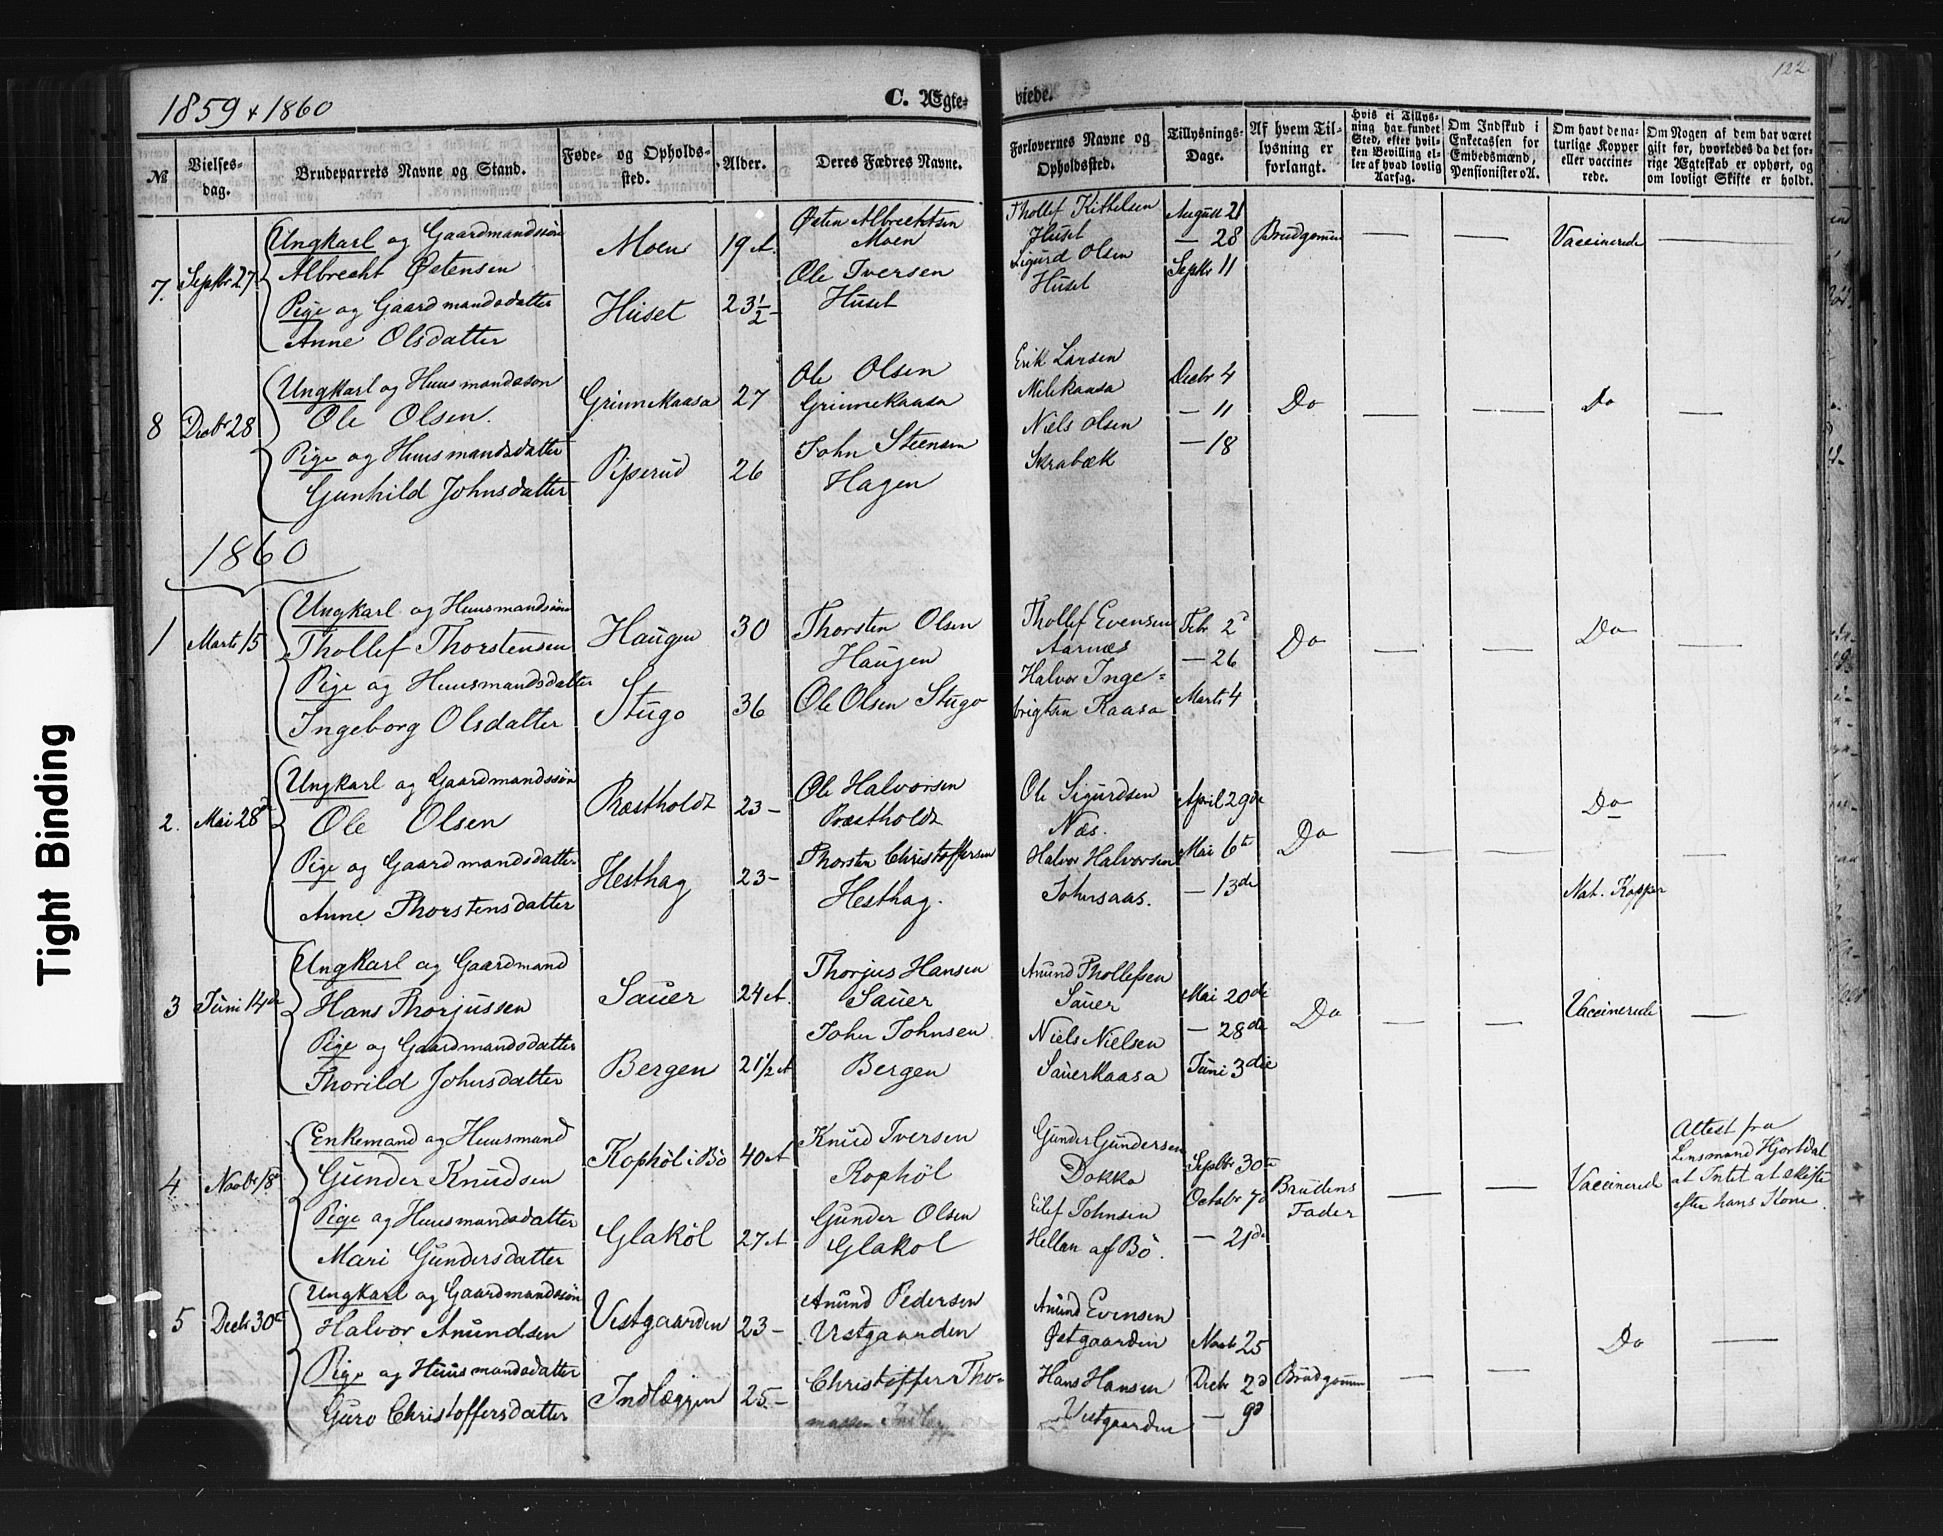 1859 & 1860
C. Ægte-
viede.
122
№
Vielses-
dag.
Brudeparrets Navne og Stand.
Føde- og Opholds-
sted.
Alder.
Deres Fædres Navne.
Forlovernes Navne og
Opholdssted.
Tillysnings-
Dage.
Af hvem Til-
lysning er
forlangt.
Hvis ei Tillys-
ning har fundet
Sted, efter hvil-
ken Bevilling el-
ler af hvad lovlig
Aarsag.
Om Indskud i
Enkecassen for
Embedsmænd,
Pensionister o.A.
Om havt dena-
turlige Kopper
eller vaccine-
rede.
Om Nogen af dem har været
gift før, hvorledes da det for-
rige Ægteskab er ophørt, og
om lovligt Skifte er holdt.
7. Septbr 27
Ungkarl og Gaardmandssøn
Albrecht Østensen
Pige og Gaardmandsdatter
Anne Olsdatter
Moen
Huset
19 A.
23½ –
Østen Albrechtsen
Moen
Ole Iversen
Huset
Thollef Kittelsen
Huset
Sigurd Olsen
Huset
August 21
— 28
Septbr 11
Brudgomen
—
—
Vaccinerede
—
8 Decbr 28
Ungkarl og Huusmandssøn
Ole Olsen.
Pige og Huusmandsdatter
Gunhild Johnsdatter
Grinnekaasa
Piperud
27
26
Ole Olsen
Grinnekaasa
John Steensen
Hagen
Erik Larsen
Melekaasa
Niels Olsen
Skrabæk
Decbr 4
— 11
— 18
Do
—
—
Do
—
1860
1 Marts 15
Ungkarl og Huusmandssøn
Thollef Thorstensen
Pige og Huusmandsdatter
Ingeborg Olsdatter
Haugen
Stugo
30
36
Thorsten Olsen
Haugen
Ole Olsen Stugo
Thollef Evensen
Aarnæs
Halvor Inge-
brigtsen Kaasa
Febr 2d
— 26
Marts 4
Do
—
—
Do
—
2. Mai 28de
Ungkarl og Gaardmandssøn
Ole Olsen
Pige og Gaardmandsdatter
Anne Thorstensdatter
Præstholdt
Hesthag
23 –
23 –
Ole Halvorsen
Præstholdt
Thorsten Christoffersen
Hesthag.
Ole Sigurdsen
Næs.
Halvor Halvorsen
Johnsaas.
April 29de
Mai 6te
— 13de
Do
—
—
Do
Nat. Kopper
—
3 Juni 14de
Ungkarl og Gaardmand
Hans Thorjussen
Pige og Gaardmandsdatter
Thorild Johnsdatter
Sauer
Bergen
24 A.
21 1/2 A
Thorjus Hansen
Sauer
John Johnsen
Bergen
Anund Thollefsen
Sauer
Niels Nielsen
Sauerkaasa
Mai 20de
— 28de
Juni 3die
Do
—
—
Vaccinerede
—
4 Novbr 18
Enkemand og Huusmand
Gunder Knudsen
Pige og Huusmandsdatter
Mari Gundersdatter
Kophöl i Bö
Glaköl
40 A
27 A
Knud Iversen
Kophöl
Gunder Olsen
Glaköl
Gunder Gundersen
Dokka
Eilef Johnsen
Hellan af Bö.
Septbr 30te
Octobr 7d
— 21de
Brudens
Fader
—
—
Vaccinerede
Attest fra
Lensmand Hjortdal
at Intet at skifte
efter hans Kone.
5 Decbr 30te
Ungkarl og Gaardmandssøn
Halvor Anundsen
Pige og Huusmandsdatter
Guro Christoffersdatter
Vestgaarden
Indlæggen
23 –
25 –
Anund Pedersen
Vestgaarden
Christoffer Tho-
massen Indlægg
Anund Evensen
Østgaarden
Hans Hansen
Vestgaarden
Novb 25
Decbr 2d
— 9d
Brudgomen
—
—
Do
—
Tight Binding